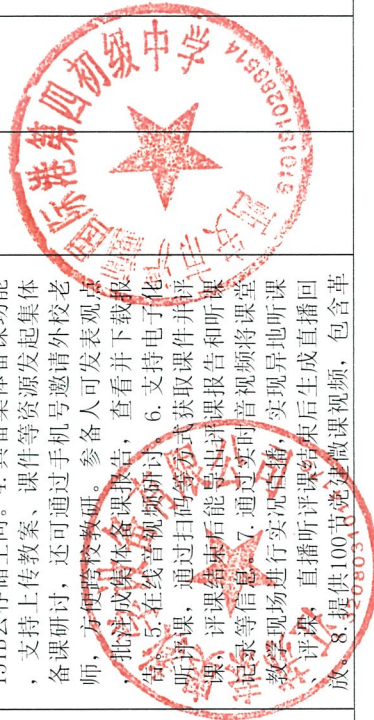 15TB云存储空间。4.具备集体备课功能
，支持上传教案、课件等资源发起集体
备课研讨，还可通过手机号邀请外校老
师，方便跨校教研。参备人可发表观点
批注成集体备课报告，查看并下载报
告。5.在线音视频研讨。6.支持电子化
听评课，通过扫码等方式获取课件并评
课，评课结束后能导出评课报告和听课
记录等信息。7.通过实时音视频将课堂
教学现场进行实况直播，实现异地听课
、评课，直播听评课结束后生成直播回
放。8.提供100节党建微课视频，包含革
国际港第四初级中学
西安市